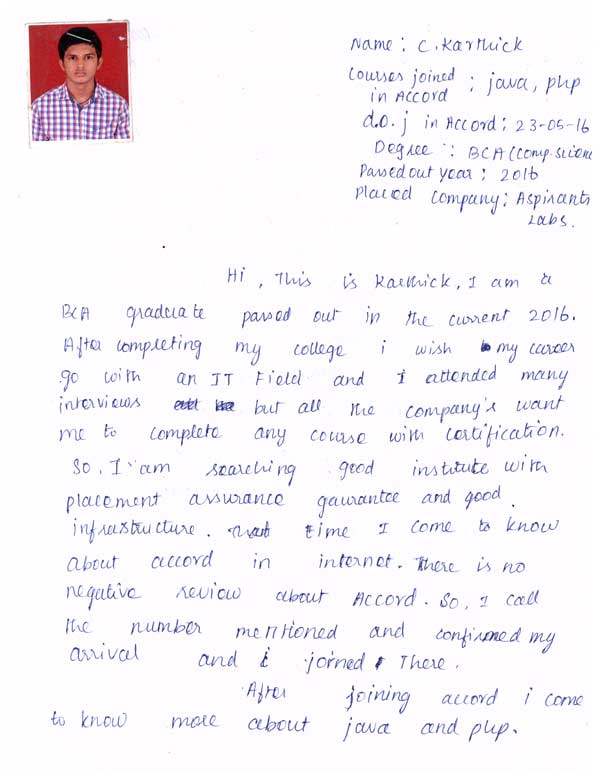 Name : C. Karthick
Courses joined : java, php
in Accord
d.o.j in Accord : 23-05-16
Degree : BCA (Comp. Science
Passed out year : 2016
Placed Company : Aspirants
Labs.
Hi, This is Karthick, I am a
BCA graduate passed out in the current 2016.
After completing my college i wish my career
go with an IT Field and I attended many
interviews but all the company's want
me to complete any course with certification.
So, I am searching good institute with
placement assurance gaurantee and good
infrastructure. That time I come to know
about accord in internet. There is no
negative review about Accord. So, I call
the number mentioned and confirmed my
arrival and i joined There.
After joining accord i come
to know more about java and php.